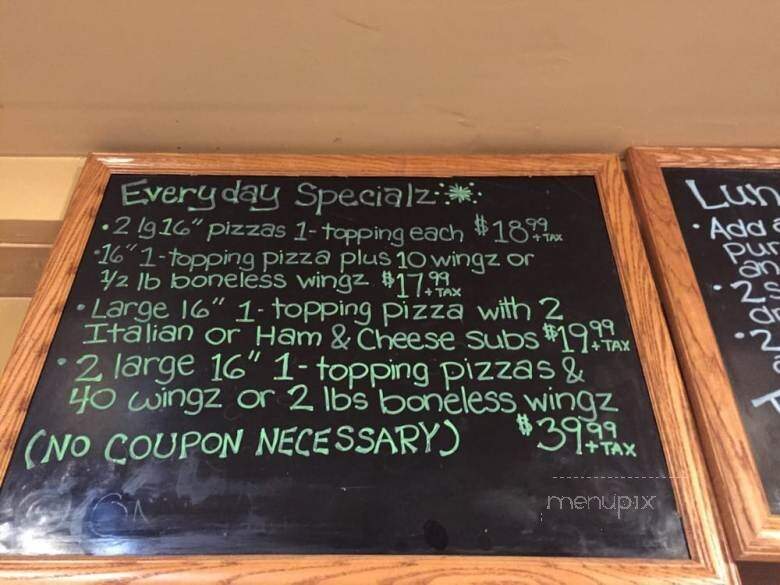 Everyday Specialz
• 2 lg 16" pizzas 1-topping each $18.99 +TAX
• 16" 1-topping pizza plus 10 wingz or
1/2 lb boneless wingz $17.99 +TAX
• Large 16" 1-topping pizza with 2
Italian or Ham & Cheese subs $19.99 +TAX
• 2 large 16" 1-topping pizzas &
40 wingz or 2 lbs boneless wingz
(NO COUPON NECESSARY) $39.99 +TAX
menupix
Lun
• Add
pur
an
• 2
• 2